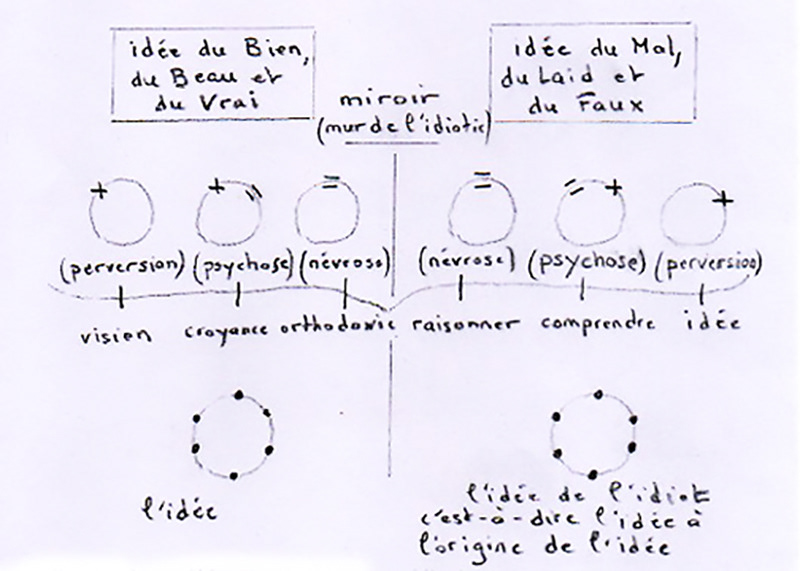 idée du Bien,
du Beau et
du Vrai
idée du Mal,
du Laid et
du Faux
miroir
(mur de l'idiotie)
(perversion) (psychose) (névrose) (névrose) (psychose) (perversion)
vision croyance orthodoxie raisonner comprendre idée
l'idée
l'idée de l'idiot
c'est-à-dire l'idée à
l'origine de l'idée